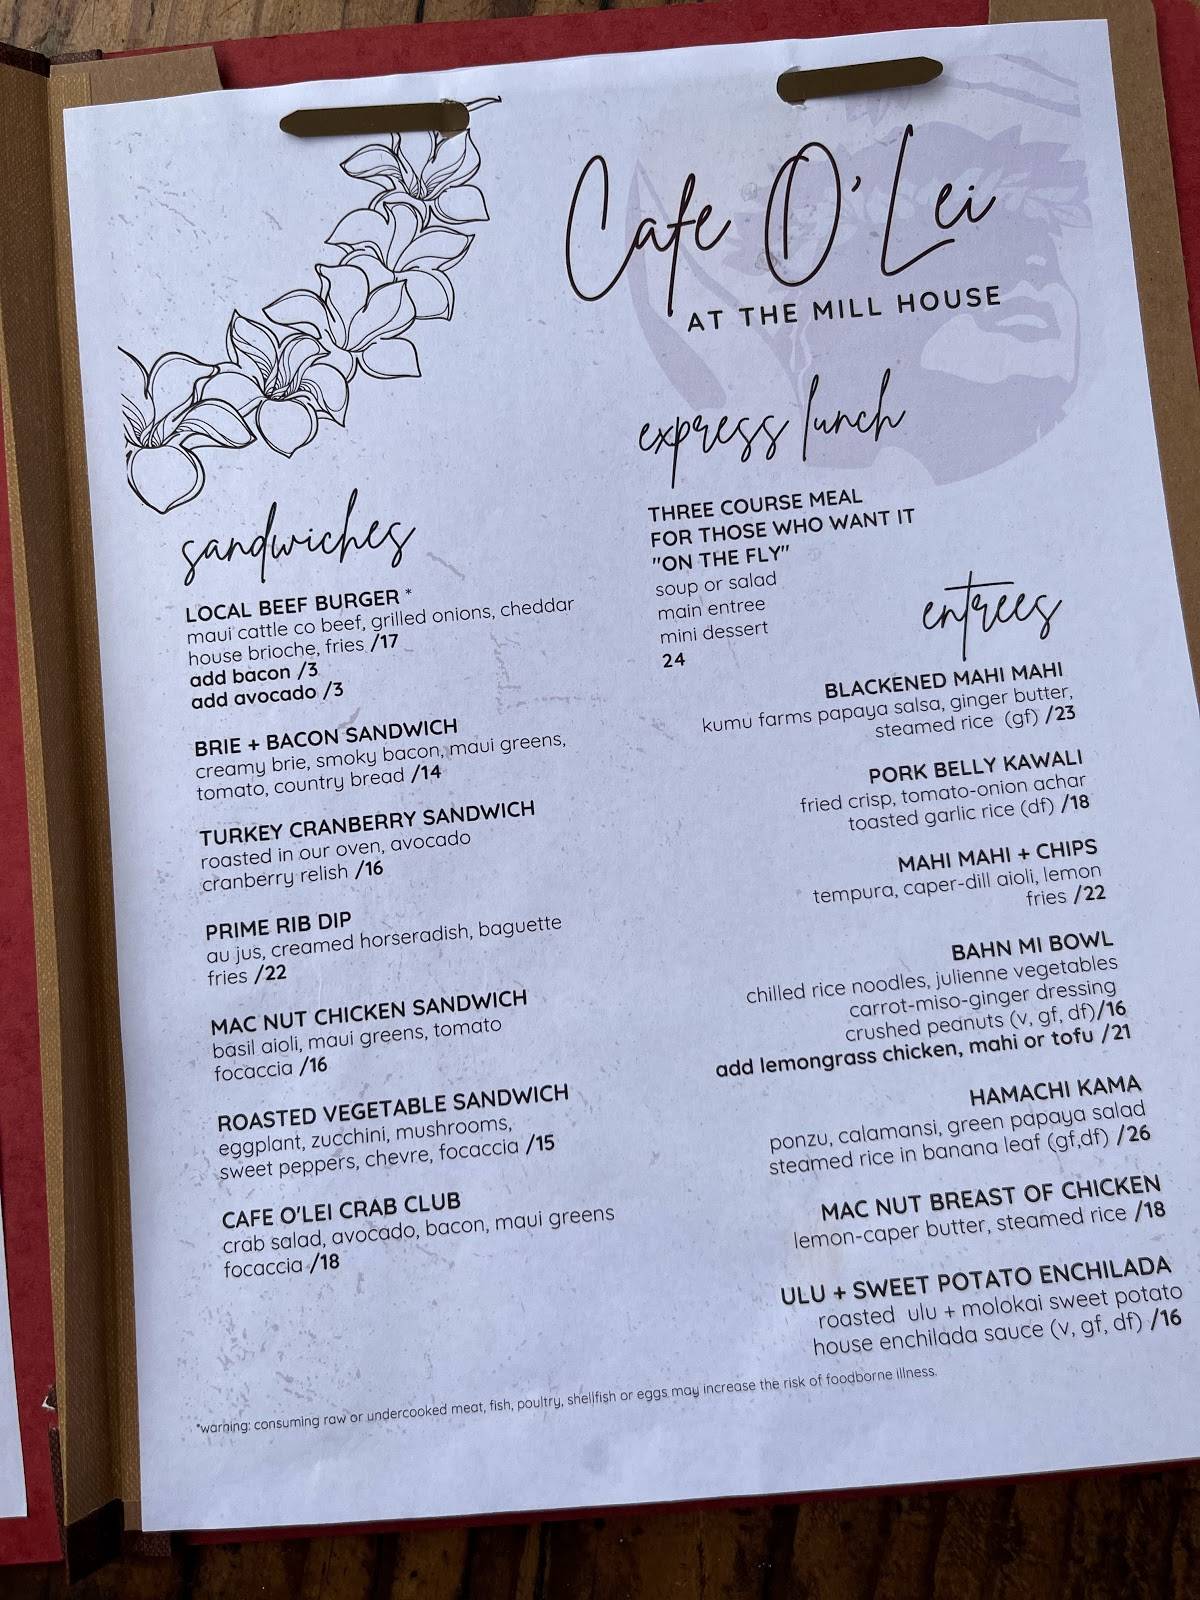 Cafe O'Lei
AT THE MILL HOUSE
express lunch
THREE COURSE MEAL
FOR THOSE WHO WANT IT
"ON THE FLY"
soup or salad
main entree
mini dessert
24
sandwiches
LOCAL BEEF BURGER *
maui cattle co beef, grilled onions, cheddar
house brioche, fries /17
add bacon /3
add avocado /3
BRIE + BACON SANDWICH
creamy brie, smoky bacon, maui greens,
tomato, country bread /14
TURKEY CRANBERRY SANDWICH
roasted in our oven, avocado
cranberry relish /16
PRIME RIB DIP
au jus, creamed horseradish, baguette
fries /22
MAC NUT CHICKEN SANDWICH
basil aioli, maui greens, tomato
focaccia /16
ROASTED VEGETABLE SANDWICH
eggplant, zucchini, mushrooms,
sweet peppers, chevre, focaccia /15
CAFE O'LEI CRAB CLUB
crab salad, avocado, bacon, maui greens
focaccia /18
entrees
BLACKENED MAHI MAHI
kumu farms papaya salsa, ginger butter,
steamed rice (gf) /23
PORK BELLY KAWALI
fried crisp, tomato-onion achar
toasted garlic rice (df) /18
MAHI MAHI + CHIPS
tempura, caper-dill aioli, lemon
fries /22
BAHN MI BOWL
chilled rice noodles, julienne vegetables
carrot-miso-ginger dressing
crushed peanuts (v, gf, df)/16
add lemongrass chicken, mahi or tofu /21
HAMACHI KAMA
ponzu, calamansi, green papaya salad
steamed rice in banana leaf (gf,df) /26
MAC NUT BREAST OF CHICKEN
lemon-caper butter, steamed rice /18
ULU + SWEET POTATO ENCHILADA
roasted ulu + molokai sweet potato
house enchilada sauce (v, gf, df) /16
*warning: consuming raw or undercooked meat, fish, poultry, shellfish or eggs may increase the risk of foodborne illness.